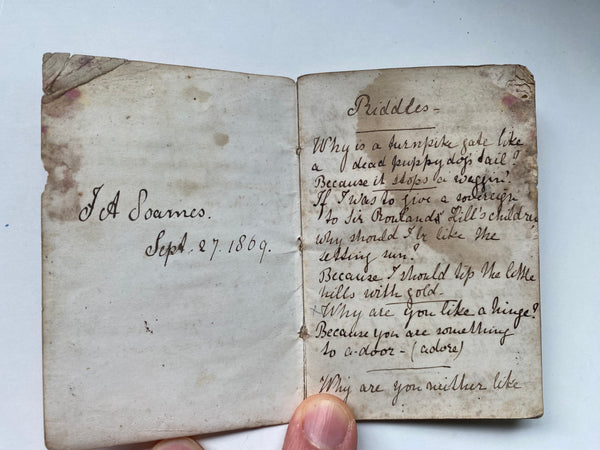 J A Soames.
Sept. 27. 1869.
Riddles -
Why is a turnpike gate like
a dead puppy dogs tail?
Because it stops a waggin'
If I was to give a sovereign
to Sir Rowlands Hill's children
why should I be like the
setting sun?
Because I should tip the little
hills with gold.
Why are you like a hinge?
Because you are something
to a-door - (adore)
Why are you neither like